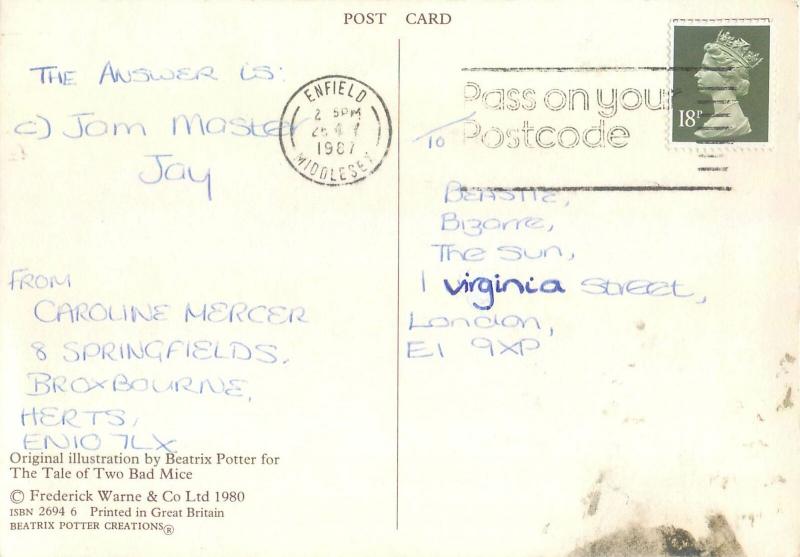 POST CARD
THE ANSWER IS:
c) Jam Master
Jay
ENFIELD
1987
MIDDLESEX
Pass on your
Postcode
18P
To
BEASTIE,
Bizarre,
The Sun,
1 Virginia Street,
London,
E1 9XP
FROM
CAROLINE MERCER
8 SPRINGFIELDS,
BROXBOURNE,
HERTS,
EN10 7LX
Original illustration by Beatrix Potter for
The Tale of Two Bad Mice
© Frederick Warne & Co Ltd 1980
ISBN 2694 6 Printed in Great Britain
BEATRIX POTTER CREATIONS®